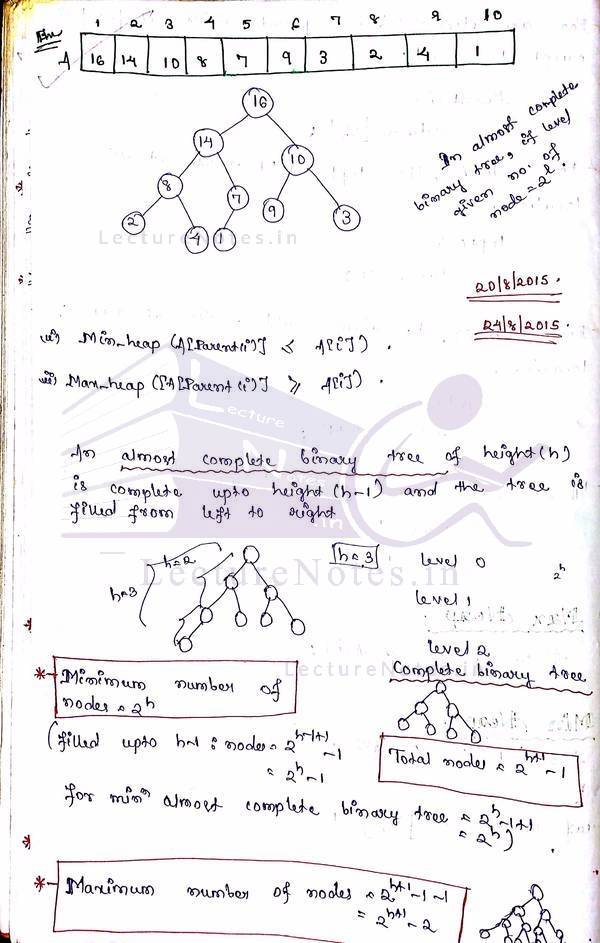 Ex
1 2 3 4 5 6 7 8 9 10
A 16 14 10 8 7 9 3 2 4 1
16
14
10
8
7
9
3
2
4
In almost complete
binary tree, if level
given no. of
node = 2^l.
LectureNotes.in
20/8/2015.
24/8/2015.
ii) Min_heap (A[Parent(i)] ≤ A[i]).
iii) Max_heap ([A[Parent(i)] ≥ A[i]).
Lecture
Notes
in
In almost complete binary tree of height(h)
is complete upto height(h-1) and the tree is
filled from left to right
h=2
h=3
h=3
level 0
2^h
LectureNotes.in
level 1
level 2
LectureNotes.in
* Minimum number of
nodes = 2^h
Complete binary tree
(filled upto h-1 : nodes = 2^h-1+1 - 1
= 2^h - 1
Total nodes = 2^h+1 - 1
for min^m almost complete binary tree = 2^h - 1 + 1
= 2^h)
* Maximum number of nodes = 2^h+1 - 1 - 1
= 2^h+1 - 2